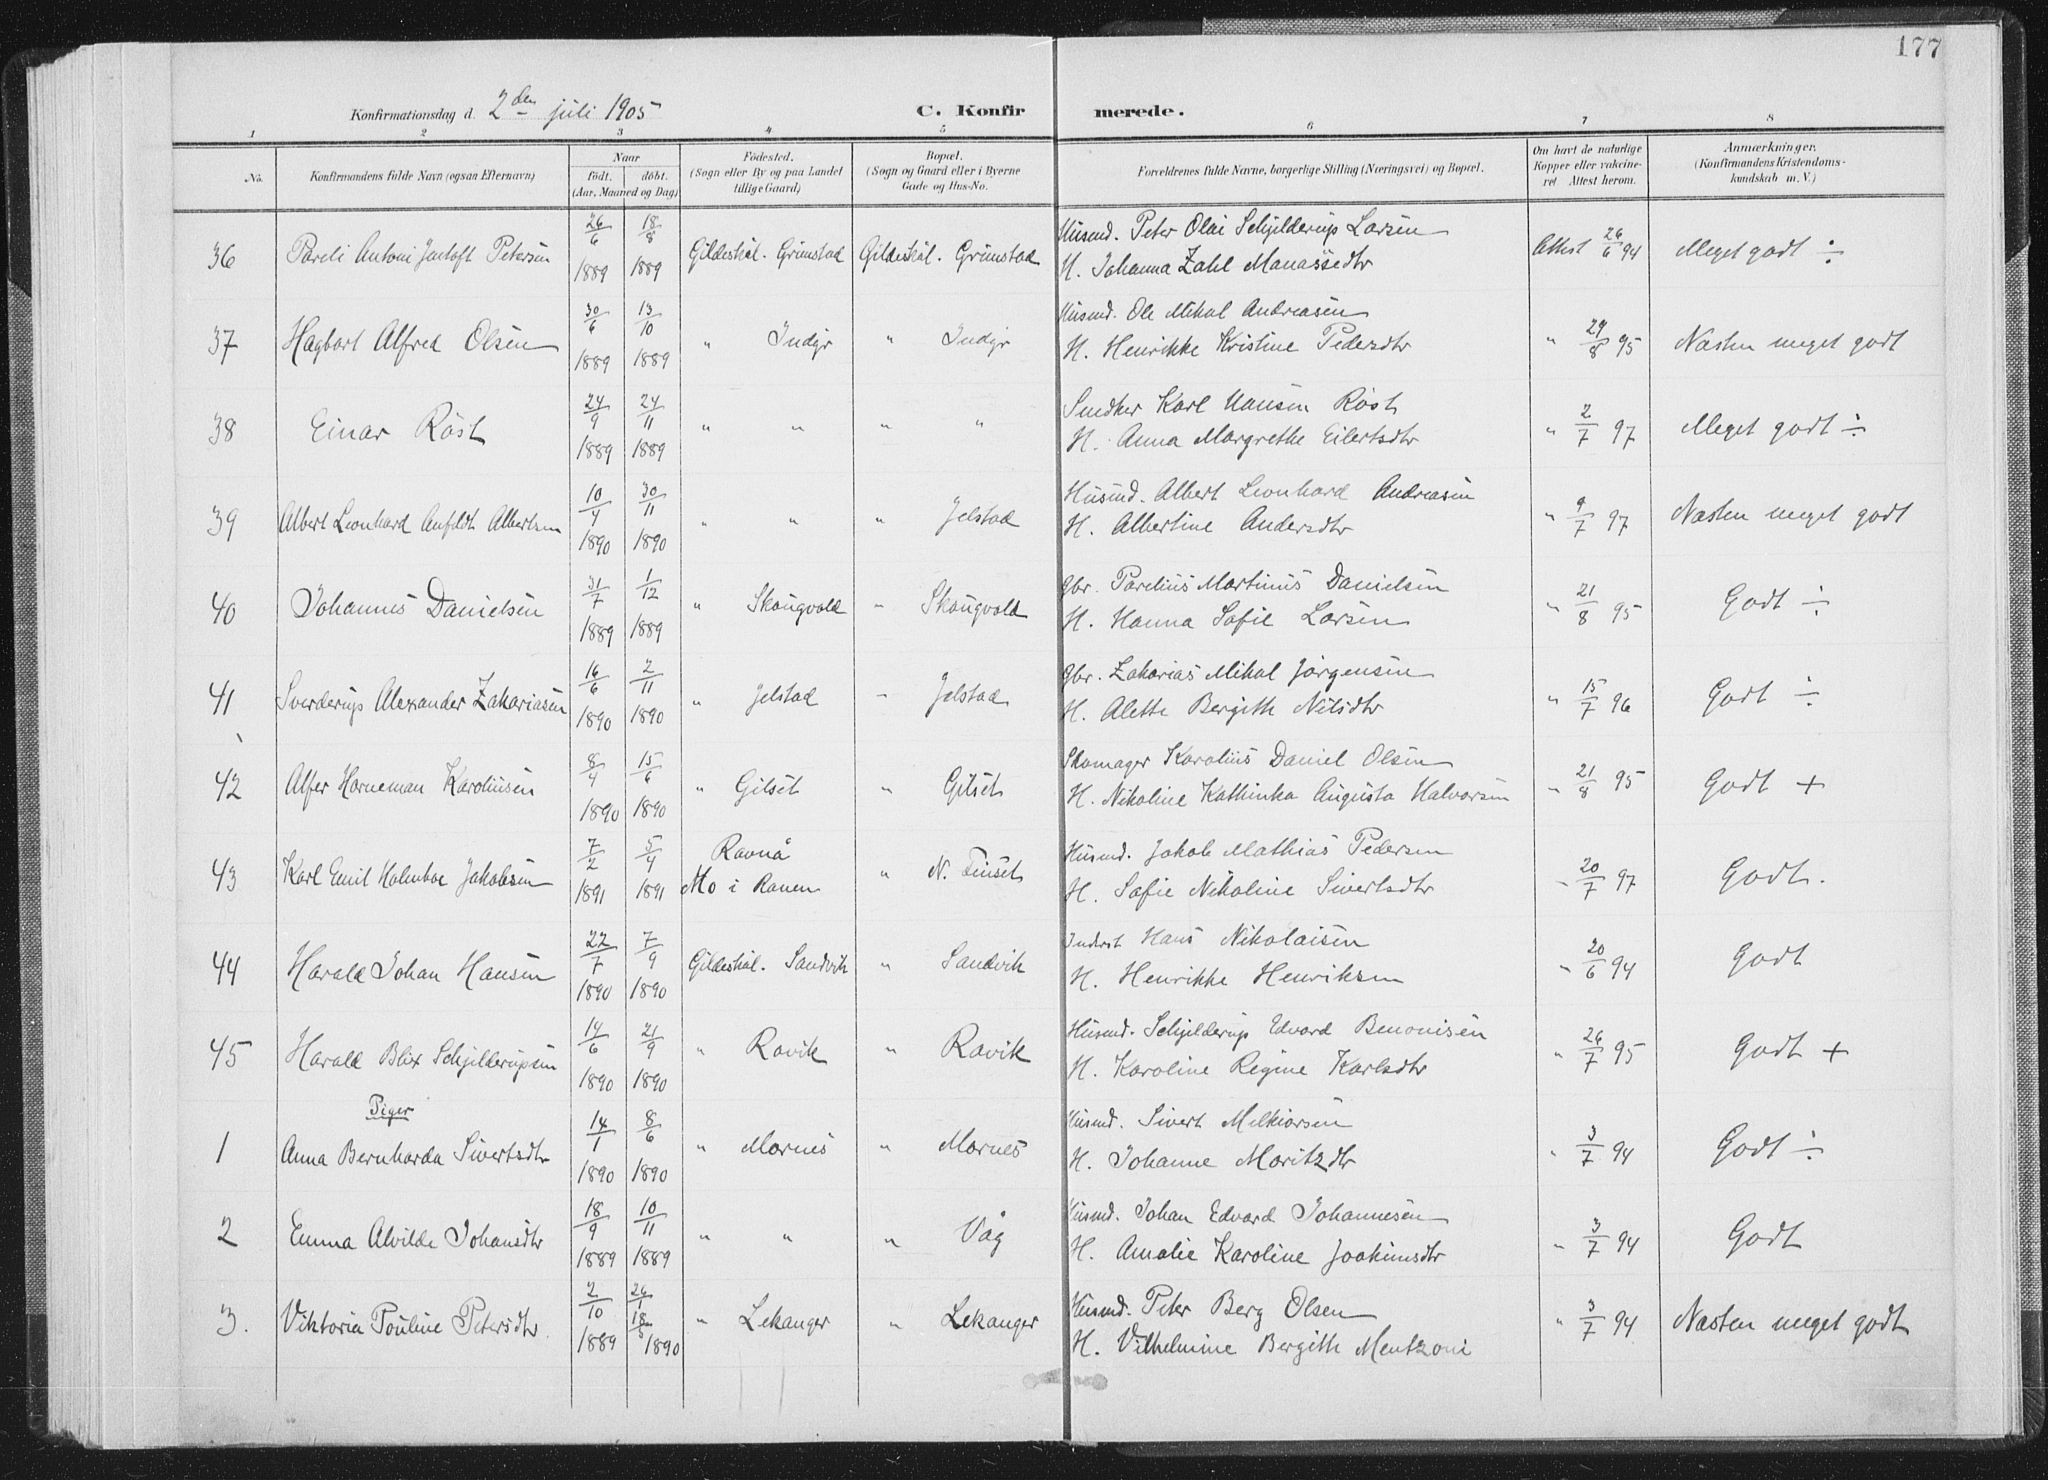 177
Konfirmationsdag d. 2den juli 1905
C. Konfirmerede.
1 2 3 4 5 6 7 8
No. Konfirmandens fulde Navn (ogsaa Efternavn) Naar født. døbt. (Aar, Maaned og Dag) Fødested. (Sogn eller By og paa Landet tillige Gaard) Bopæl. (Sogn og Gaard eller i Byerne Gade og Hus-No. Forældrenes fulde Navne, borgerlige Stilling (Næringsvei) og Bopæl. Om havt de naturlige Kopper eller vakcineret Attest herom. Anmærkninger. (Konfirmandens Kristendomskundskab m. V.)
36 Pareli Antoni Petersen 26/6 1889 18/8 1889 Gildeskål. Grimstad Gildeskål. Grimstad Husmd. Peter Olai Schjelderup Larsen
H. Johanna Zahl Manassedtr Attest 26/6 94 Meget godt ÷
37 Hagbart Alfred Olsen 30/6 1889 13/10 1889 " Indyr " Indyr Husmd. Ole Mikal Andreasen
H. Henrikke Kristine Pedersdtr " 29/8 95 Næsten meget godt
38 Einar Röst 24/9 1889 24/11 1889 " " " " Snedker Karl Hansen Röst
H. Anna Margrethe Eilertsdtr " 2/7 97 Meget godt ÷
39 Albert Leonhard Anfeldt Albertsen 10/4 1890 30/11 1890 " " " Jelstad Husmd. Albert Leonhard Andreasen
H. Albertine Andersdtr " 9/7 97 Næsten meget godt
40 Johannes Danielsen 31/7 1889 1/12 1889 " Skougvold " Skougvold Gbr. Parelius Martinus Danielsen
H. Hanna Sofie Larsen " 21/8 95 Godt ÷
41 Sverderup Alexander Zakariasen 16/6 1890 2/11 1890 " Jelstad " Jelstad Gbr. Zakarias Mikal Jörgensen
H. Alette Bergitte Nilsdtr " 15/7 96 Godt ÷
42 Alfer Horneman Karoliusen 8/4 1890 15/6 1890 " Gilset " Gilset Skomager Karolius Daniel Olsen
H. Nikoline Kathinka Augusta Halvorsen " 21/8 95 Godt +
43 Karl Emil Holmboe Jakobsen 7/2 1891 5/4 1891 Ravnå Mo i Ranen " N. Finset Husmd. Jakob Mathias Pedersen
H. Sofie Nikoline Sivertsdtr " 20/7 97 Godt.
44 Harald Johan Hansen 22/7 1890 7/9 1890 Gildeskål. Sandvik " Sandvik Inderst Hans Nikolaisen
H. Henrikke Henriksen " 20/6 94 Godt
45 Harald Blix Schjelderupsen 14/6 1890 21/9 1890 " Ravik " Ravik Husmd. Schjelderup Edvard Benonisen
H. Karoline Regine Karlsdtr " 26/7 95 Godt +
Piger
1 Anna Bernharda Sivertsdtr 14/1 1890 8/6 1890 " Mornes " Mornes Husmd. Sivert Melkiorsen
H. Johanne Moritzdtr " 3/7 94 Godt ÷
2 Emma Alvilde Johansdtr 18/9 1889 10/11 1889 " " " Våg Husmd. Johan Edvard Johannesen
H. Amalie Karoline Joakimsdtr " 3/7 94 Godt
3. Viktoria Pouline Petersdtr. 2/10 1889 26/1 18/5 1890 " Lekanger " Lekanger Husmd. Peter Berg Olsen
H. Vilhelmine Bergitte Mentzoni " 3/7 94 Næsten meget godt